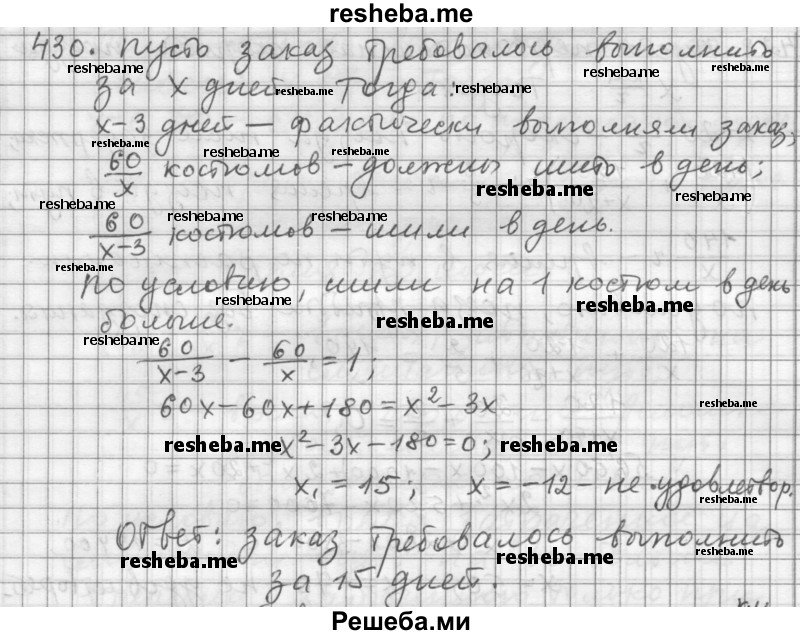 resheba.me
430. Пусть заказ требовалось выполнить
resheba.me resheba.me resheba.me
за x дней. Тогда:
resheba.me resheba.me
x-3 дней — фактически выполняли заказ;
resheba.me resheba.me resheba.me
60/x костюмов — должны шить в день;
resheba.me resheba.me
resheba.me resheba.me resheba.me
60/(x-3) костюмов — шили в день.
resheba.me
По условию, шили на 1 костюм в день
resheba.me resheba.me
больше.
resheba.me
resheba.me
60/(x-3) - 60/x = 1;
60x - 60x + 180 = x² - 3x
resheba.me
resheba.me x² - 3x - 180 = 0; resheba.me
x₁ = 15; x = -12 - не удовлетвор.
resheba.me
Ответ: заказ требовалось выполнить
resheba.me resheba.me resheba.me
за 15 дней.
Решеба.ми